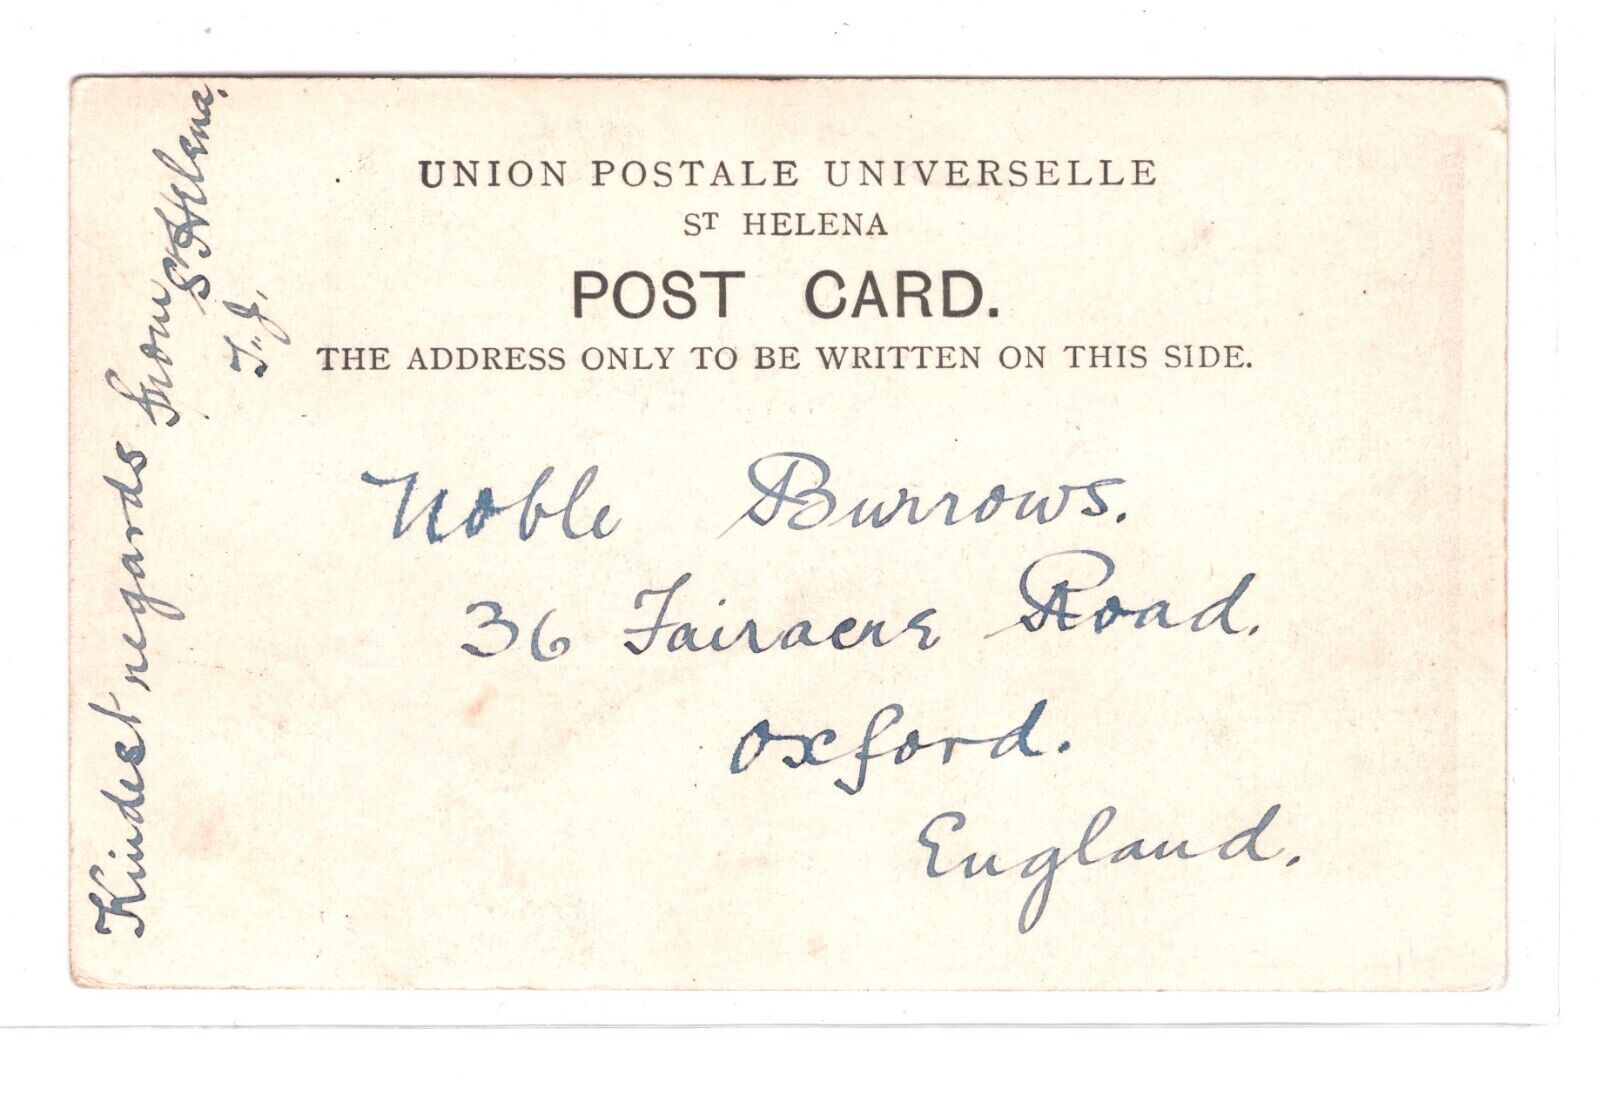 UNION POSTALE UNIVERSELLE
ST HELENA
POST CARD.
THE ADDRESS ONLY TO BE WRITTEN ON THIS SIDE.
Kindest regards from
St Helena.
T.J.
Noble Burrows.
36 Fairacre Road.
Oxford.
England.